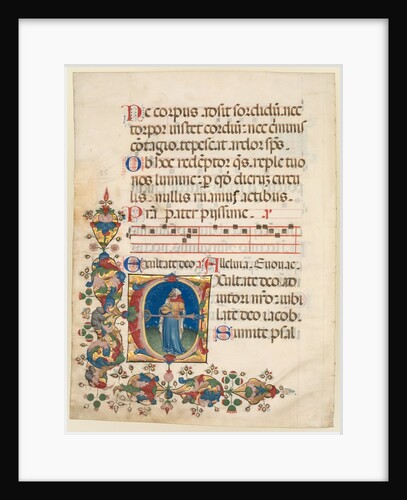 Ne corpus assit sordidū. nec
torpor instet cordiū. nec criminis
cōtagio. tepescat. ardor sp̄s.
Ob hoc redēptor q̄s. reple tuo
nos lumine. p qđ dierū circu
lis. nullis ruam' actibus.
Prā. pater piissime.
Exultate deo Alleluia. Euouae.
Exultate deo ad
iutori nr̄o. iubi
late deo iacob.
Sumite psal